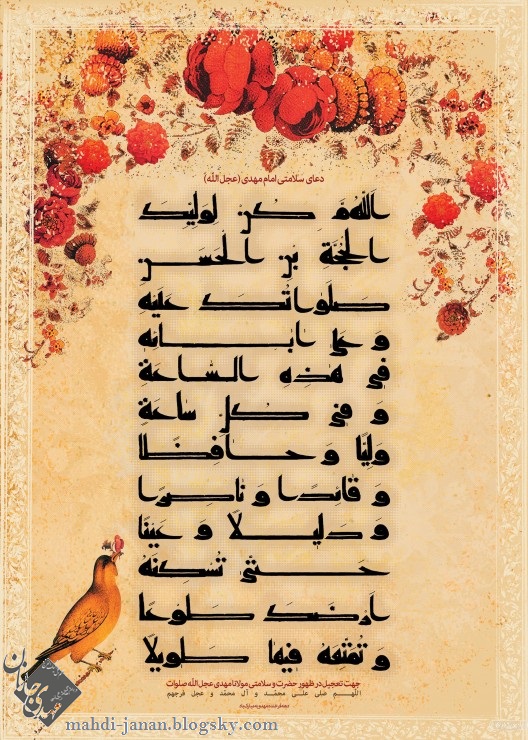 دعای سلامتی امام مهدی (عجل الله)
اللهم كن لوليك
الحجة بن الحسن
صلواتك عليه
و على ابائه
في هذه الساعة
و في كل ساعة
وليا و حافظا
و قائدا و ناصرا
و دليلا و عينا
حتى تسكنه
ارضك طوعا
و تمتعه فيها طويلا
جهت تعجیل در ظهور حضرت و سلامتی مولانا مهدی عجل الله صلوات
اللهم صلی علی محمد و آل محمد و عجل فرجهم
مهدی جانان
mahdi-janan.blogsky.com